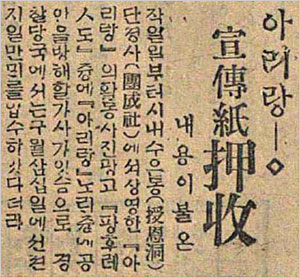 아리랑—◇
宣傳紙押收
내용이불온
작일일부터시내수은동(授恩洞)
단성사(團成社)에서상영한『아
리랑』의활동사진광고『팡후레
ㅅ도』중에『아리랑』노리중에공
안을방해할가사가잇슴으로 경
찰당국에서는구월삼십일에선뎐
지일만매를압수하얏다더라